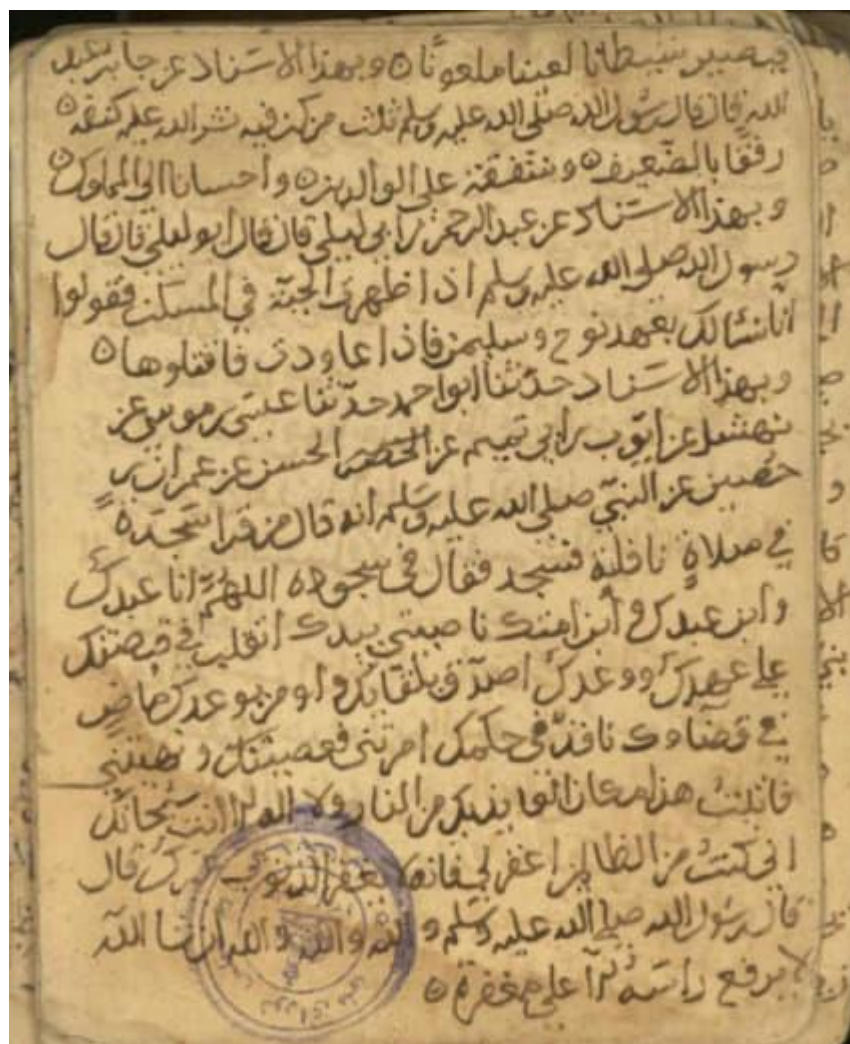 فيصير شيطانا لعينا ملعونًا ٥ وبهذا الاسناد عن جابر بن عبد
الله قال قال رسول الله صلى الله عليه وسلم ثلث من كن فيه نشر الله عليه كنفه ٥
رفقًا بالضعيف ٥ وشفقة على الوالدين ٥ واحسانا الى المملوك ٥
وبهذا الاسناد عن عبد الرحمن بن ابي ليلى قال قال ابو ليلى قال قال
رسول الله صلى الله عليه وسلم اذا ظهرت الحية في المسكن فقولوا
انا نسالك بعهد نوح وسليمن فاذا عاودت فاقتلوها ٥
وبهذا الاسناد حدّثنا ابو احمد حدّثنا عيسى بن موسى عن
نهشل عن ايّوب بن ابي تميم عن الحسن عن عمران بن
حُصين عن النبيّ صلى الله عليه وسلم انه قال من قرا سجدة
في صلاةٍ نافلة فسجد فقال في سجوده اللهُمّ انا عبدك
وابن عبدك وابن امتك ناصيتي بيدك اتقلب في قبضتك
على عهدك ووعدك اصدّق بلقائك واومن بوعدك ماضٍ
في قضاوك نافذٌ في حكمك امرتني فعصيتك ونهيتني
فاتيت هذا مكان العايذ بك من النار ولا اله الا انت سبحانك
اني كنت من الظالمين اغفر لي فانه لا يغفر الذنوب غيرك قال
قال رسول الله صلى الله عليه وسلم والله والله والله ان شا الله
لا يرفع راسه الا على مغفرة ٥